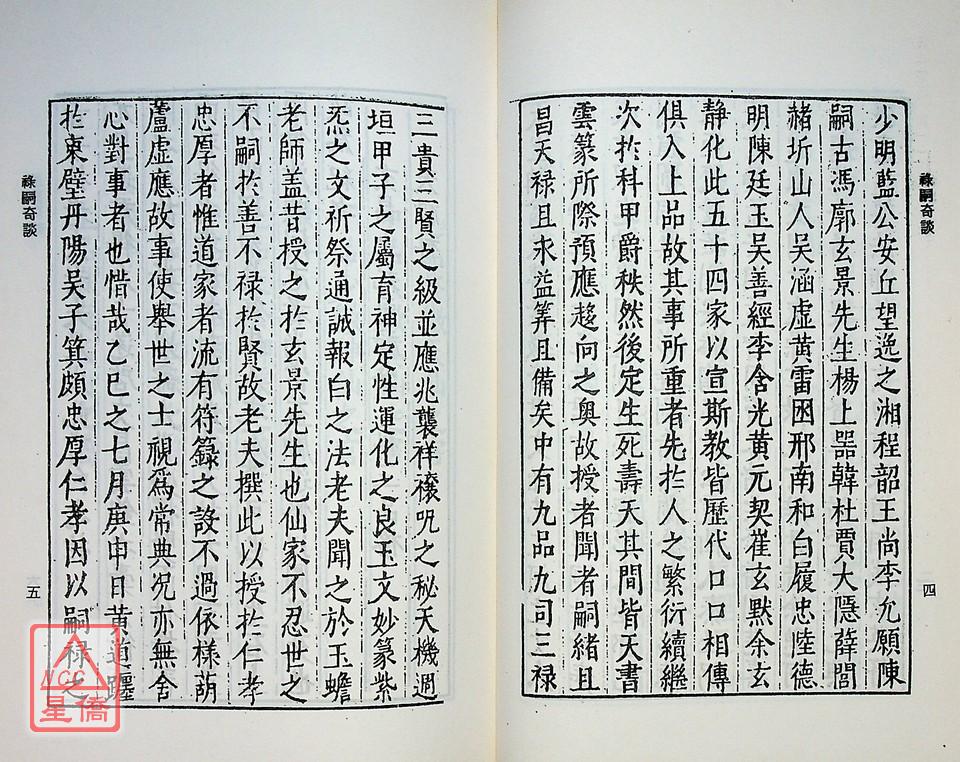 祿嗣奇談
少明藍公安丘望逸之湘程韶王尚李允願陳
嗣古馮廓玄景先生楊上器韓杜賈大隱薛閻
赭圻山人吳涵虛黃雷困邢南和白履忠陸德
明陳廷玉吳善經李含光黃元契崔玄默余玄
静化此五十四家以宣斯教皆歷代口口相傳
俱入上品故其事所重者先扵人之繁衍續繼
次扵科甲爵秩然後定生死壽夭其間皆天書
雲篆所際預應趍向之奥故授者聞者嗣緒且
昌天禄且永益筭且備矣中有九品九司三禄
四
三貴三賢之級並應兆襲祥禳咒之秘天機週
垣甲子之屬育神定性運化之良玉文妙篆紫
炁之文祈祭通誠報白之法老夫聞之於玉蟾
老師盖昔授之扵玄景先生也仙家不忍世之
不嗣扵善不禄扵賢故老夫撰此以授扵仁孝
忠厚者惟道家者流有符籙之設不過依樣葫
蘆虛應故事使舉世之士視爲常典况亦無舍
心對事者也惜哉乙巳之七月庚申日黄道躔
扵東壁丹陽吴子箕頗忠厚仁孝因以嗣禄之
祿嗣奇談
五
NCC
星僑